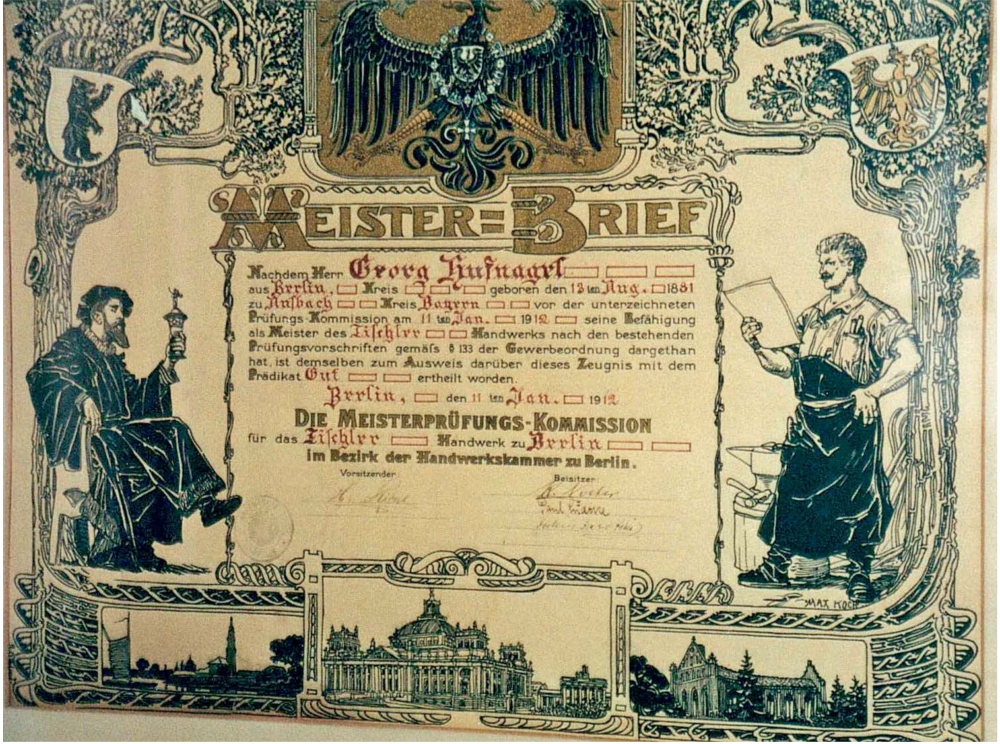 MEISTER=BRIEF
Nachdem Herr Georg Hufnagel
aus Berlin, Kreis geboren den 12ten Aug. 1881
zu Ansbach Kreis Bayern vor der unterzeichneten
Prüfungs-Kommission am 11ten Jan. 1912 seine Befähigung
als Meister des Tischler Handwerks nach den bestehenden
Prüfungsvorschriften gemäfs § 133 der Gewerbeordnung dargethan
hat, ist demselben zum Ausweis darüber dieses Zeugnis mit dem
Prädikat Gut ertheilt worden.
Berlin, den 11ten Jan. 1912
DIE MEISTERPRÜFUNGS-KOMMISSION
für das Tischler Handwerk zu Berlin
im Bezirk der Handwerkskammer zu Berlin.
Vorsitzender Beisitzer
Paul
MAX KOCH